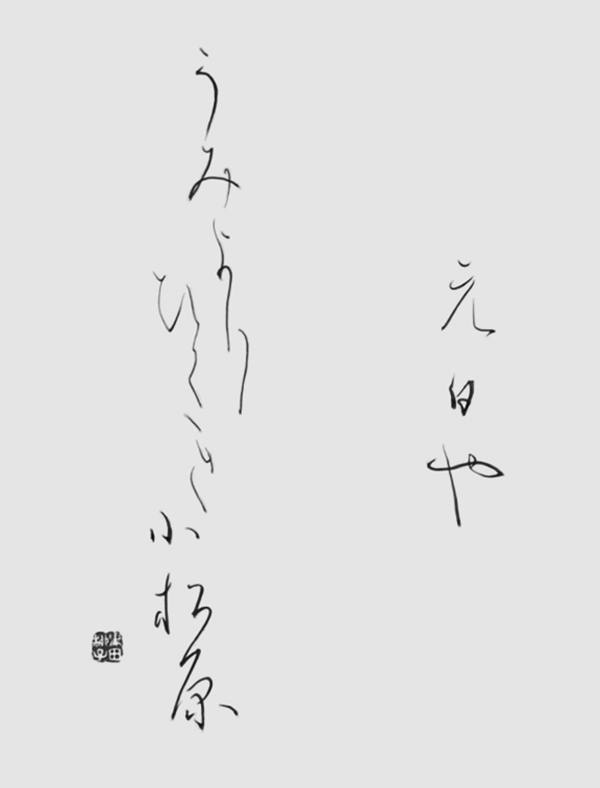 元日や
うみよりひくき小松原